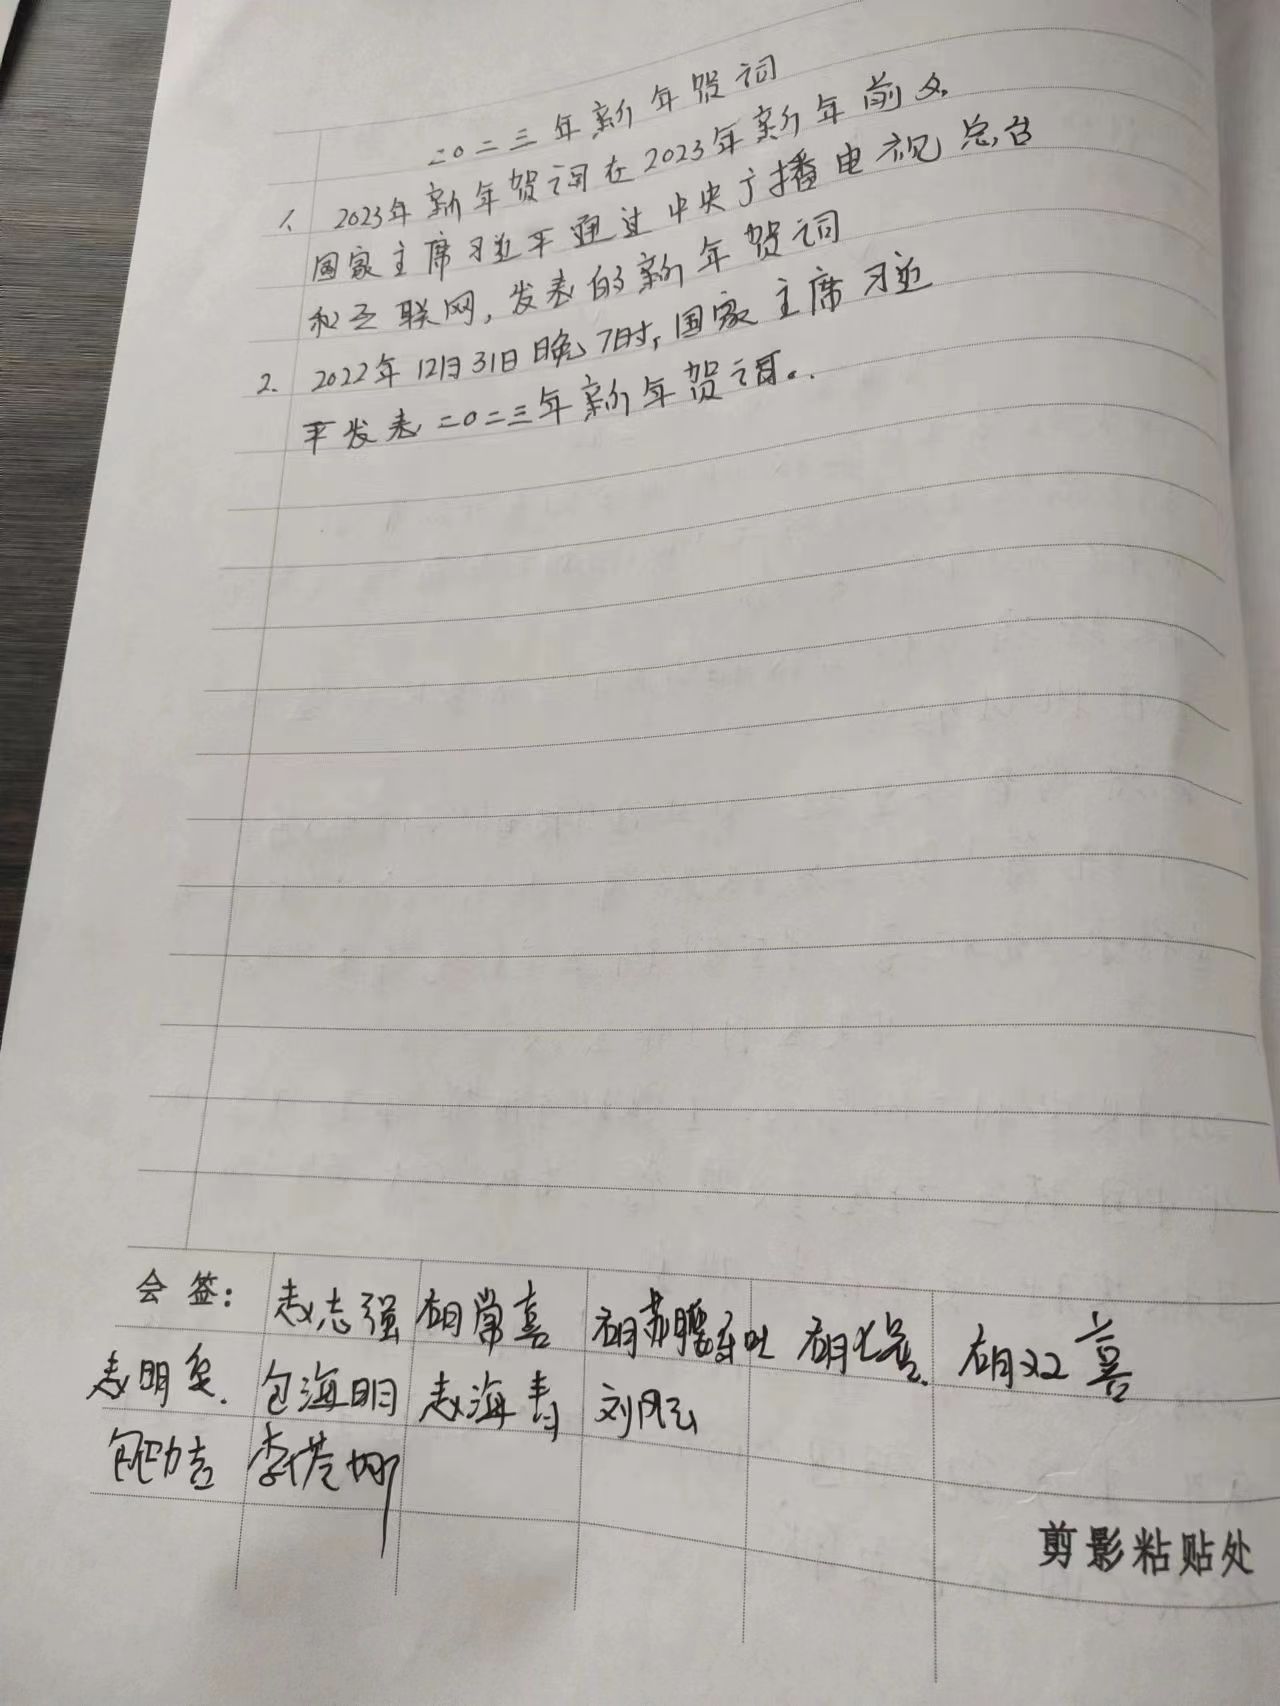 二〇二三年新年贺词
1、2023年新年贺词在2023年新年前夕,
国家主席习近平通过中央广播电视总台
和互联网,发表的新年贺词
2. 2022年12月31日晚7时,国家主席习近
平发表二〇二三年新年贺词。
会签: 赵志强 胡常喜 胡双喜
包海明 赵海青
剪影粘贴处